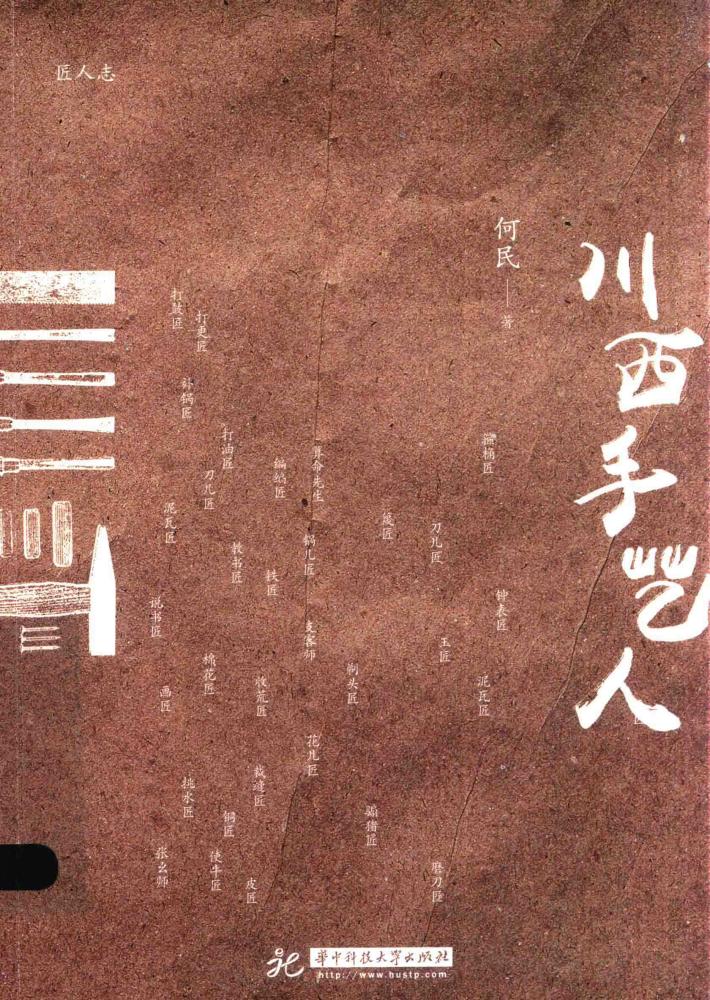 匠人志
川西手艺人
何民
著
打鼓匠
打更匠
补锅匠
打油匠
刀儿匠
编蒻匠
算命先生
泥瓦匠
教书匠
铁匠
锅儿匠
篾匠
刀儿匠
箍桶匠
说书匠
棉花匠
收荒匠
剃头匠
玉匠
钟表匠
画匠
泥瓦匠
花儿匠
裁缝匠
挑水匠
铜匠
骟猪匠
张幺师
使牛匠
皮匠
磨刀匠
匠
华中科技大学出版社
http://www.hustp.com